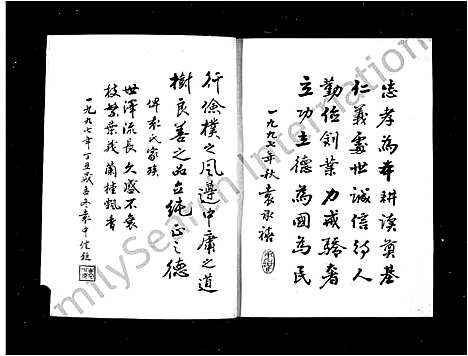 忠孝為本耕读奠基
仁義處世誠信待人
勤俭創業力戒驕奢
立功立德為國為民
一九九七年秋袁永禧
行儉樸之風遵中庸之道
樹良善之品立純正之德
俾袁氏家族
世澤流長久盛不衰
枝繁葉茂蘭桂飄香
一九九七年丁丑歲孟冬袁中
milySearch International